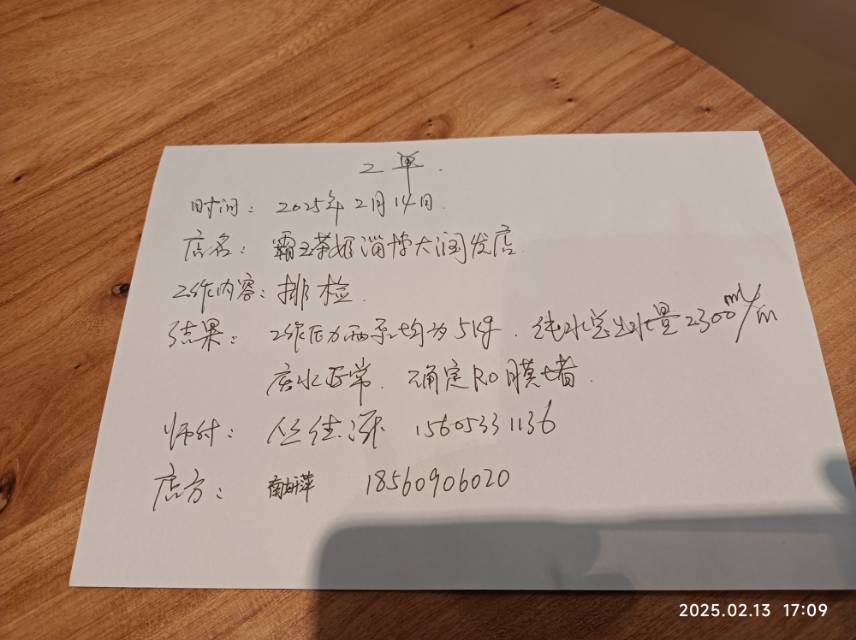 工单.
时间: 2025年2月14日.
店名: 霸王茶姬淄博大润发店.
工作内容: 排检.
结果: 工作压力两季均为5kg. 纯水总出水量2300ml/m
废水正常. 确定RO膜堵.
师付: 15605331136
店方: 18560906020
2025.02.13 17:09